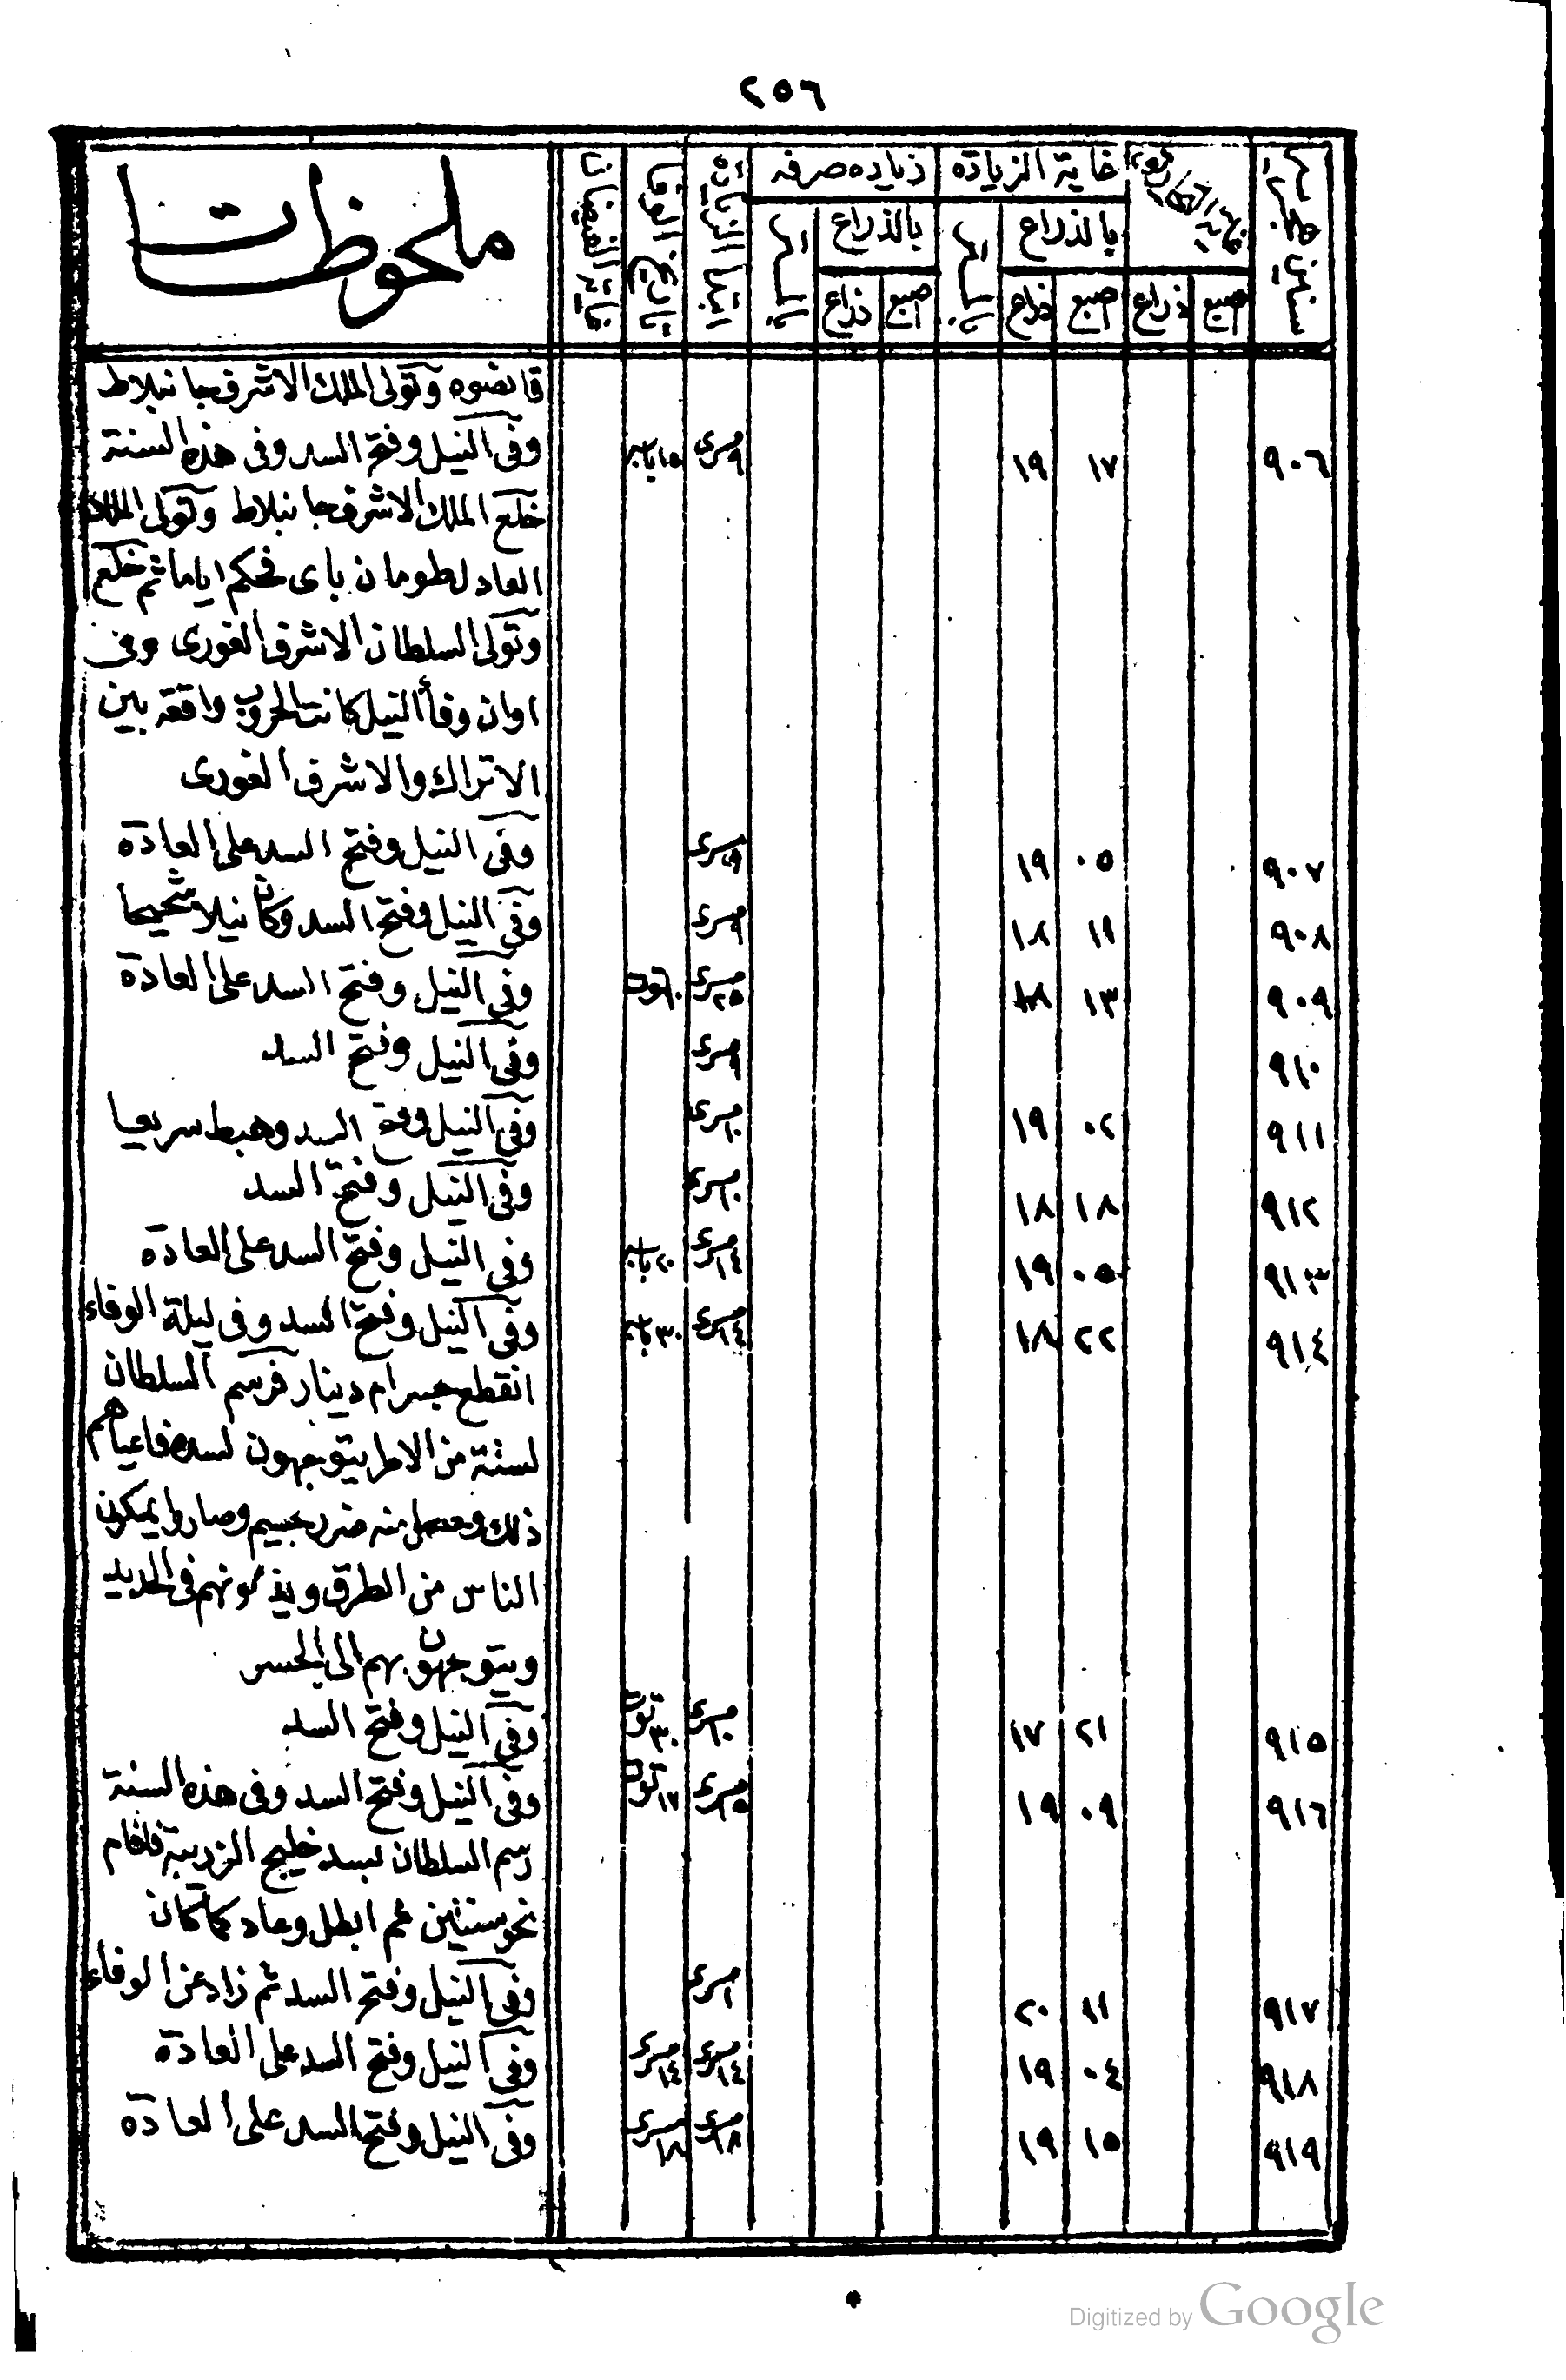 ٢٥٦
غاية الزيادة
زياده صرفه
ملحوظات
بالذراع
بالذراع
اصبع ذراع اصبع ذراع اصبع ذراع
قانصوه وتولى الملك الاشرف جانبلاط
٩٠٦ ١٧ ١٩ مسرى ١٥ بابه وفى النيل وفتح السد وفى هذه السنة
خلع الملك الاشرف جانبلاط وتولى الملك
العادل طومان باى فحكم اياما ثم خلع
وتولى السلطان الاشرف الغورى وفى
اوان وفأ النيل كانت الحروب واقعة بين
الاتراك والاشرف الغورى
٩٠٧ ٠٥ ١٩ مسرى وفى النيل وفتح السد على العادة
٩٠٨ ١٩ ١٨ مسرى وفى النيل وفتح السد وكان نيلا شحيحا
٩٠٩ ١٣ ١٨ مسرى ٢٥ توت وفى النيل وفتح السد على العادة
٩١٠ مسرى وفى النيل وفتح السد
٩١١ ٠٢ ١٩ مسرى ١٠ وفى النيل وفتح السد وهبط سريعا
٩١٢ ١٨ ١٨ مسرى ١٠ وفى النيل وفتح السد
٩١٣ ٠٥ ١٩ مسرى ١٤ ٢٠ بابه وفى النيل وفتح السد على العادة
٩١٤ ٢٢ ١٨ مسرى ١٤ ٣٠ بابه وفى النيل وفتح السد وفى ليلة الوفاء
انقطع جسر ام دينار فرسم السلطان
لستة من الامرا يتوجهون لسده فاعياهم
ذلك وحصل منه ضرر جسيم وصاروا يمسكون
الناس من الطرق ويضعونهم فى الحديد
ويتوجهون بهم الى الجسر
٩١٥ ٢١ ١٧ مسرى ١٠ توت ٣٠ وفى النيل وفتح السد
٩١٦ ٠٩ ١٩ مسرى ١٥ توت ١٧ وفى النيل وفتح السد وفى هذه السنة
رسم السلطان بسد خليج الزربية فاقام
نحو سنتين ثم ابطل وعاد كما كان
٩١٧ ١١ ٢٠ مسرى وفى النيل وفتح السد ثم زاد عن الوفاء
٩١٨ ٠٤ ١٩ مسرى ١٤ مسرى ١٤ وفى النيل وفتح السد على العادة
٩١٩ ١٥ ١٩ مسرى ١٨ مسرى ١٨ وفى النيل وفتح السد على العادة
Digitized by Google